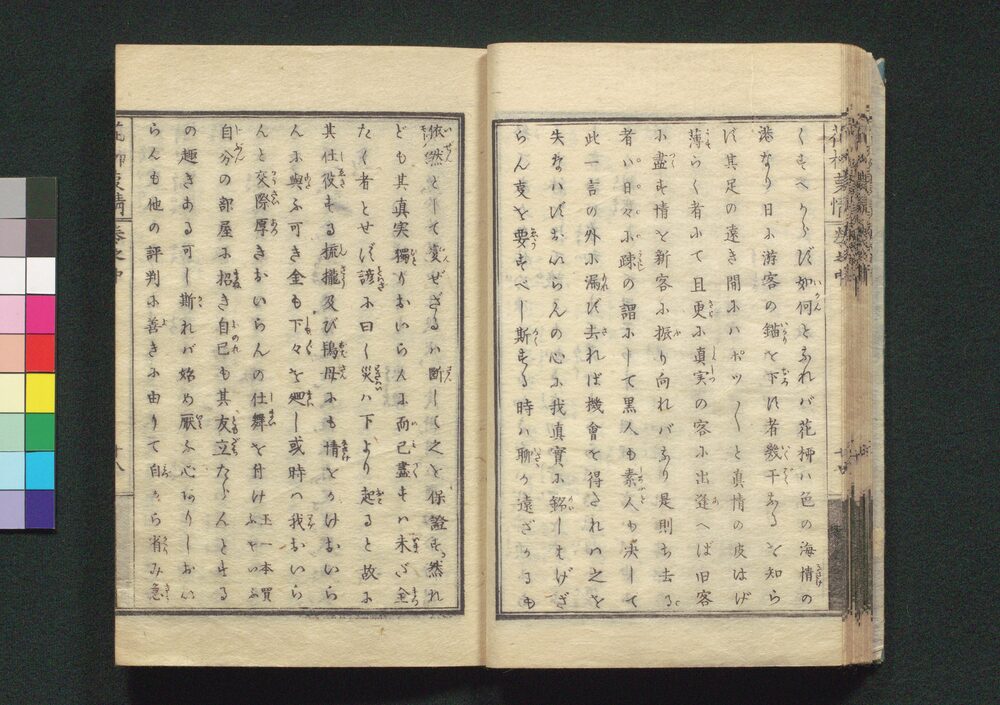 くすべからず如何となれバ花柳ハ色の海情の
港なり日に游客の錨を下す者幾干なるを知ら
ず其足の遠き間にハポツ〱と真情の皮はげ
薄らく者にて且更に真実の客に出逢へば旧客
に盡す情を新客に振り向れバなり是則ち去る
者ハ日々に疎の謂にして黒人も素人も決して
此一言の外に漏び去れば機會を得されハ之を
失なハずおいらんの心に我真實に銘しもげざ
らん事を要すべし斯する時ハ聊か遠ざかるも
依然として変ぜざるハ断して之を保證す然れ
ども其真実獨りおいらんに而已盡すハ未だ全
たく者とせず諺に曰く災ハ下より起ると故に
其仕役する梳櫳及び鴇母にも情をかけおいら
んに與ふ可き金も下々を廻し或時ハ我おいら
んと交際厚きおいらんの仕舞を付け玉一本買
自分の部屋に招き自己も其友立たらんとする
の趣きある可し斯れバ始め厭ふ心ありしおい
らんも他の評判に善きに由りて自から省み急
花柳事情 巻之中